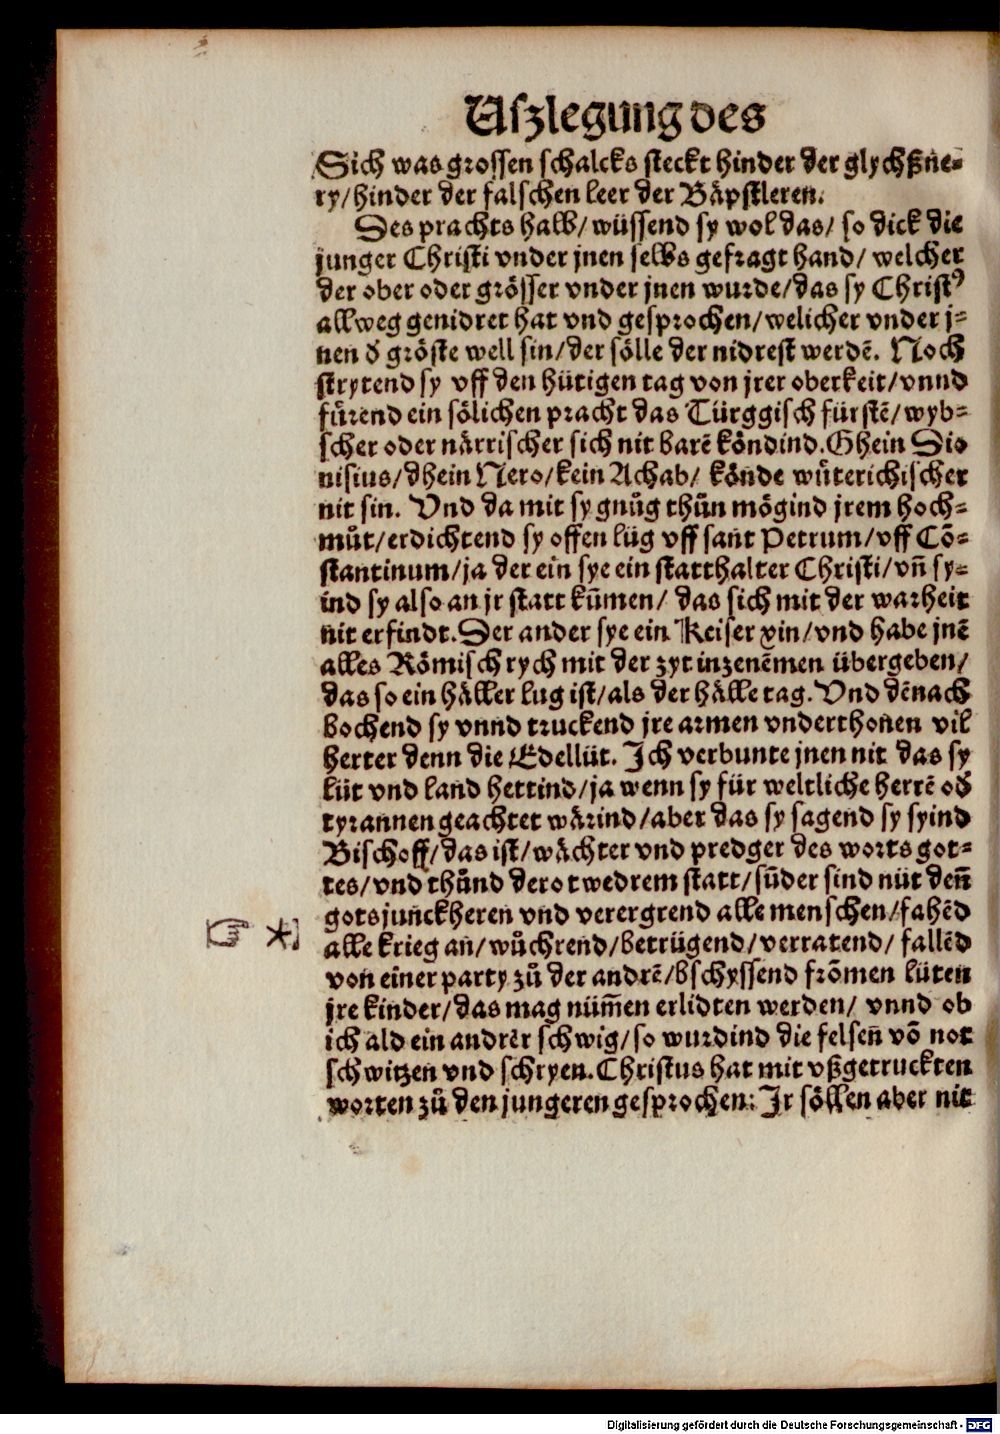 Uſzlegung des
Sich was groſſen ſchalcks ſteckt hinder der glychßne⸗
ry/hinder der falſchen leer der Bäpſtleren.
Des prachts halb/ wüſſend ſy wol das/ ſo dick die
junger Chriſti vnder jnen ſelbs gefragt hand/ welcher
der ober oder gröſſer vnder jnen wurde/das ſy Chriſtꝰ
allweg genidret hat vnd geſprochen/welicher vnder j⸗
nen d̕ gröſte well ſin/der ſölle der nidreſt werdē. Noch
ſtrytend ſy vff den hütigen tag von jrer oberkeit/vnnd
fürend ein ſölichen pracht das Türggiſch fürſtē/wyb⸗
ſcher oder närriſcher ſich nit barē köndind.Ghein Dio
niſius/dhein Nero/kein Achab/ könde wůterichiſcher
nit ſin. Vnd da mit ſy gnůg thůn mögind jrem hoch⸗
můt/erdichtend ſy offen lüg vff ſant Petrum/vff Cō⸗
ſtantinum/ja der ein ſye ein ſtatthalter Chriſti/vn̄ ſy⸗
ind ſy alſo an jr ſtatt kūmen/ das ſich mit der warheit
nit erfindt.Der ander ſye ein Keiſer xin/vnd habe jnē
alles Römiſch rych mit der zyt inzenēmen übergeben/
das ſo ein häller lug iſt/als der hälle tag.Vnd dēnach
bochend ſy vnnd truckend jre armen vnderthonen vil
herter denn die Edellüt. Ich verbunte jnen nit das ſy
lüt vnd land hettind/ja wenn ſy für weltliche herrē od̕
tyrannen geachtet wärind/aber das ſy ſagend ſy ſyind
Biſchoff/das iſt/wächter vnd predger des worts got⸗
tes/vnd thůnd derot wedrem ſtatt/ſūder ſind nüt den̄
gotsjunckheren vnd verergrend alle menſchen/fahēd
☞ *] alle krieg an/wůchrend/betrügend/verratend/ fallēd
von einer party zů der andrē/bſchyſſend frōmen lüten
jre kinder/das mag nüm̄en erlidten werden/ vnnd ob
ich ald ein andrer ſchwig/ſo wurdind die felſen vō not
ſchwitzen vnd ſchryen.Chriſtus hat mit vßgetruckten
worten zů den jungeren geſprochen: Ir ſöllen aber nit
Digitalisierung gefördert durch die Deutsche Forschungsgemeinschaft - DFG